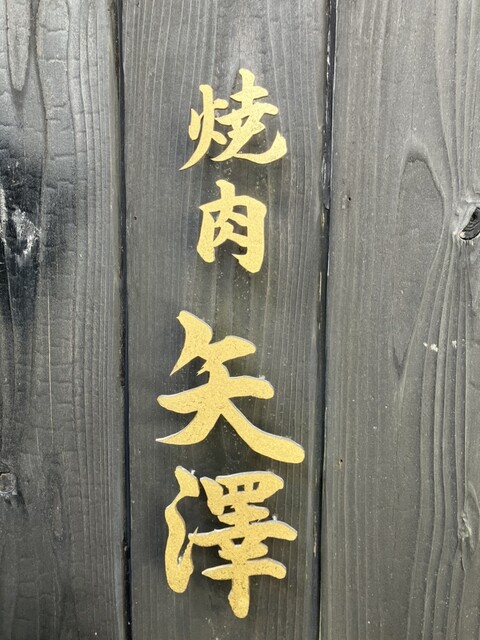 焼肉
矢澤